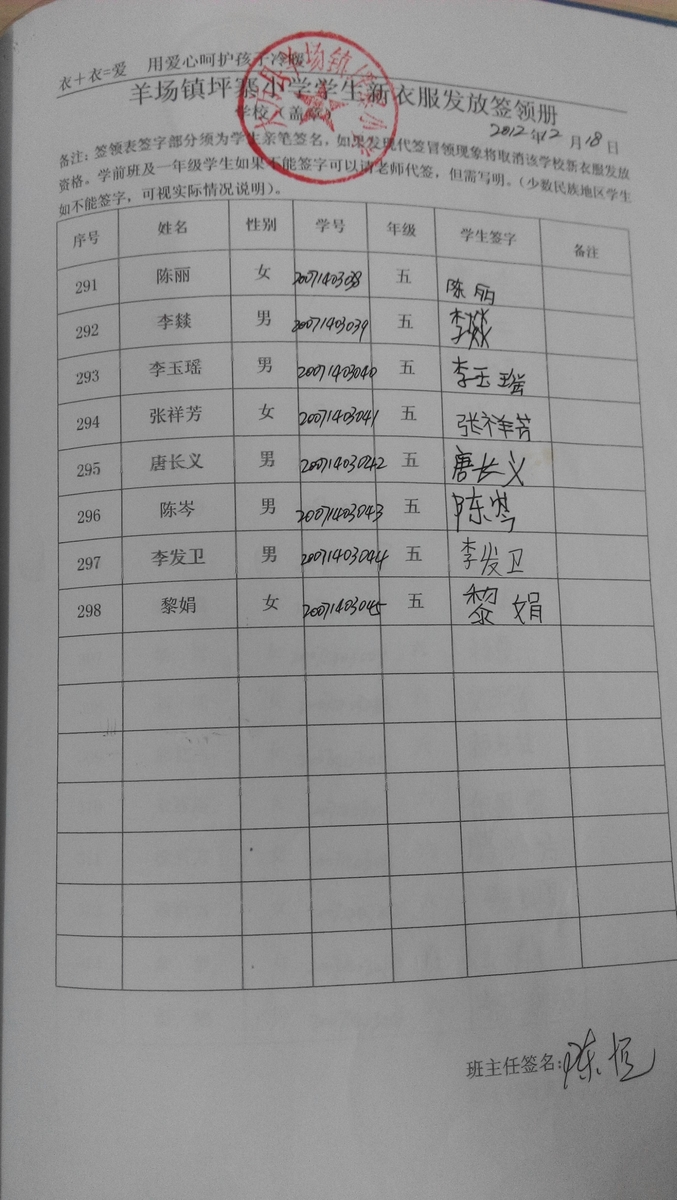 衣+衣=爱 用爱心呵护孩子冷暖
羊场镇坪寨小学学生新衣服发放签领册
学校(盖章)
2012年12月18日
备注:签领表签字部分须为学生亲笔签名,如果发现代签冒领现象将取消该学校新衣服发放
资格。学前班及一年级学生如果不能签字可以请老师代签,但需写明。(少数民族地区学生
如不能签字,可视实际情况说明)。
序号 姓名 性别 学号 年级 学生签字 备注
291 陈丽 女 20071403038 五 陈丽
292 李燚 男 20071403039 五 李燚
293 李玉瑶 男 20071403040 五 李玉瑶
294 张祥芳 女 20071403041 五 张祥芳
295 唐长义 男 20071403042 五 唐长义
296 陈岑 男 20071403043 五 陈岑
297 李发卫 男 20071403044 五 李发卫
298 黎娟 女 20071403045 五 黎娟
班主任签名:陈恒